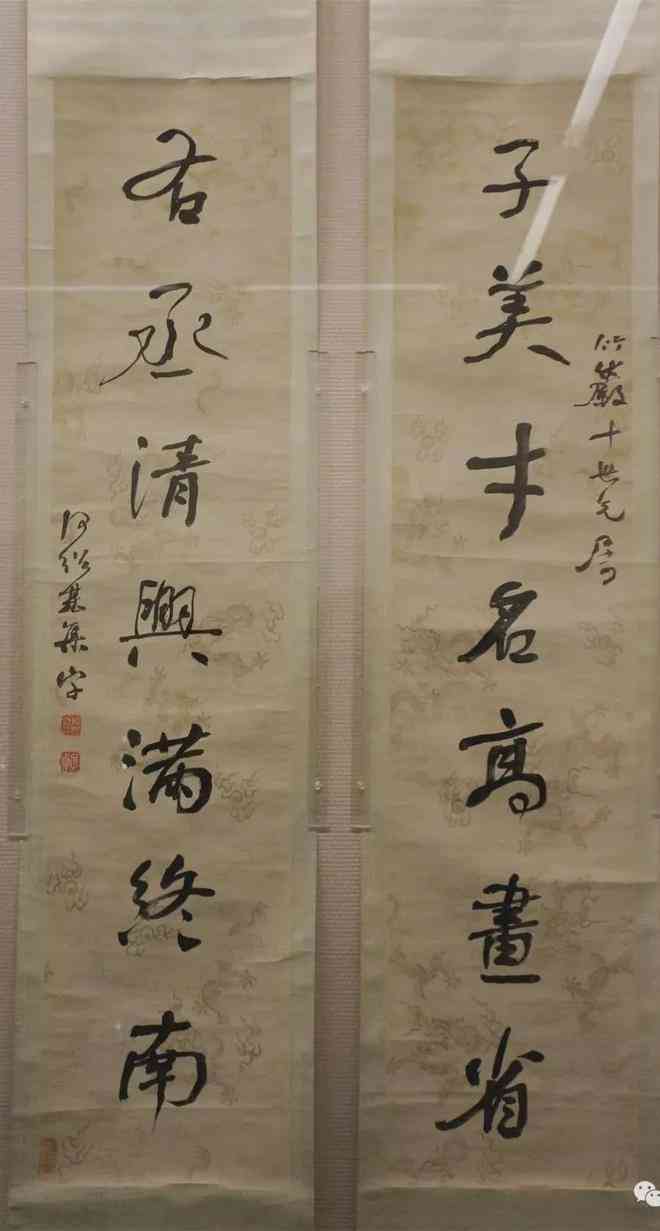 子美才名高畫省
竹嚴十世兄屬
右丞清興滿終南
何紹基集字